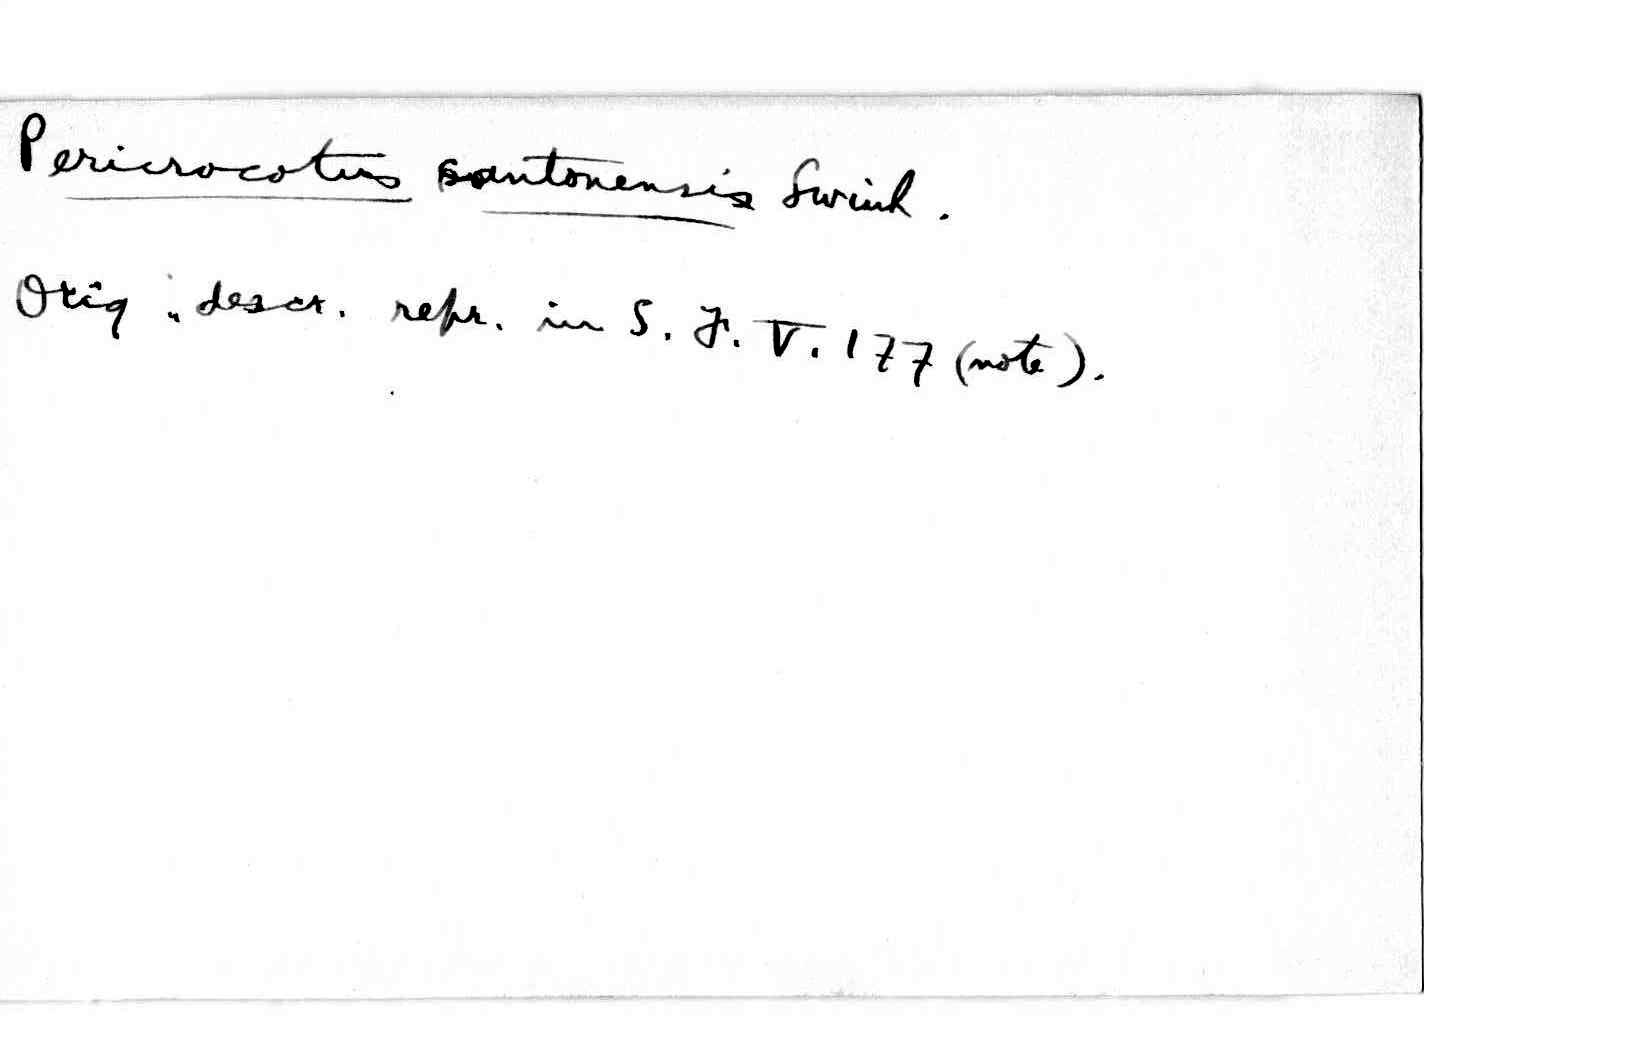 Pericrocotus santonensis Swinh.
Orig. descr. repr. in S. F. V. 177 (note).